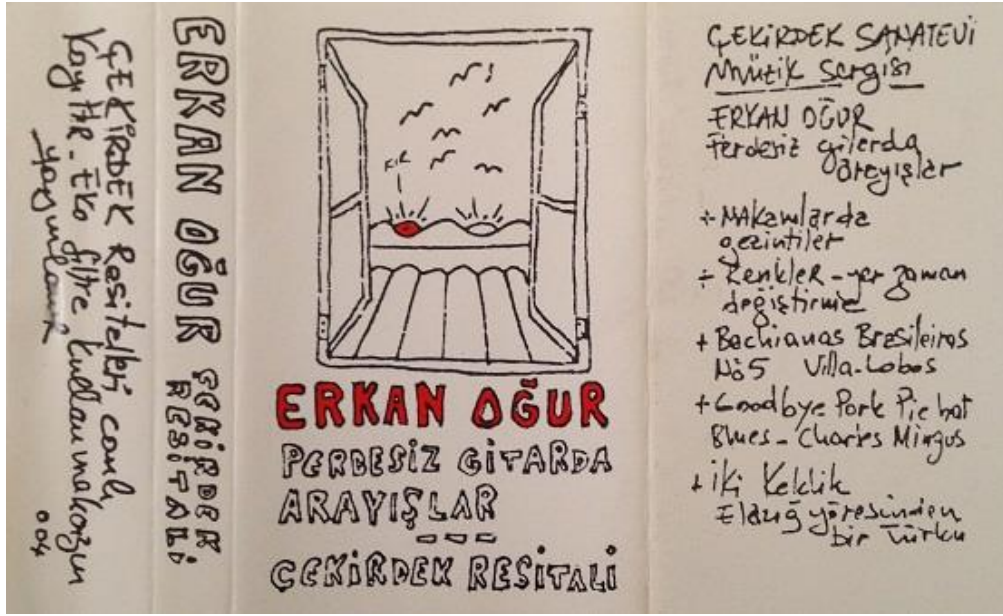 ÇEKİRDEK Resitalleri canlı
Kayıttır. Eko filtre kullanmaksızın
yayınlanır
004
ERKAN OĞUR ÇEKİRDEK
RESİTALİ
KIR
ERKAN OĞUR
PERDESİZ GİTARDA
ARAYIŞLAR
ÇEKİRDEK RESİTALİ
ÇEKİRDEK SANATEVİ
Müzik Sergisi
ERKAN OĞUR
Perdesiz gitarda
arayışlar
+ Makamlarda
gezintiler
+ Renkler - yer zaman
değiştirme
+ Bachianas Bresileiros
No5 Villa-Lobos
+ Goodbye Pork Pie hat
Blues - Charles Mingus
+ iki Keklik
Elazığ yöresinden
bir türkü